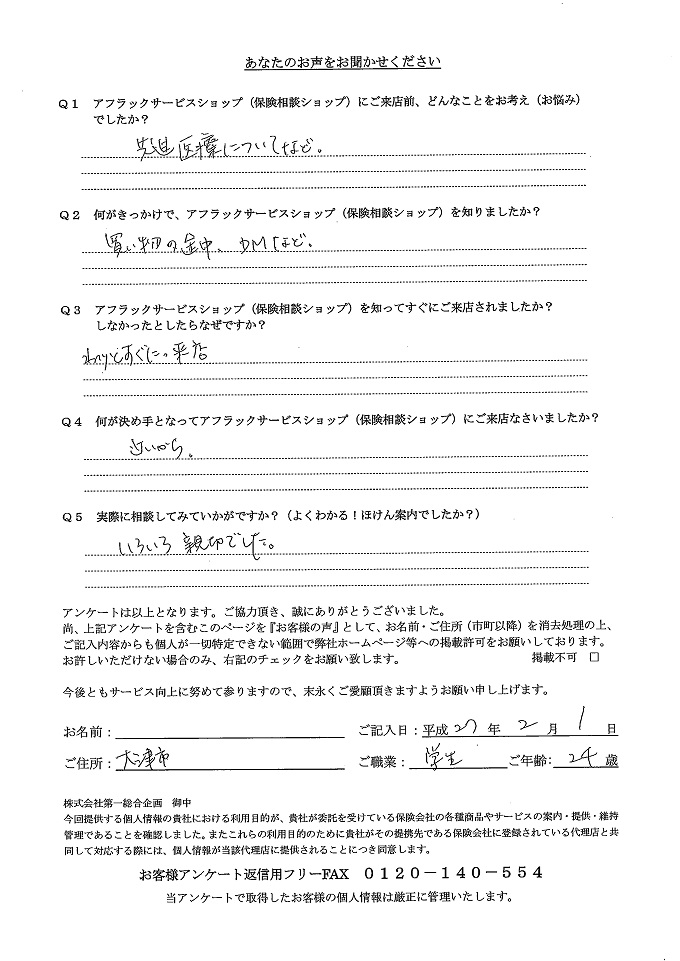 あなたのお声をお聞かせください
Q1 アフラックサービスショップ（保険相談ショップ）にご来店前、どんなことをお考え（お悩み）
でしたか？
先進医療についてなど。
Q2 何がきっかけで、アフラックサービスショップ（保険相談ショップ）を知りましたか？
買い物の途中、DMなど。
Q3 アフラックサービスショップ（保険相談ショップ）を知ってすぐにご来店されましたか？
しなかったとしたらなぜですか？
わりとすぐに 来店
Q4 何が決め手となってアフラックサービスショップ（保険相談ショップ）にご来店なさいましたか？
近いから。
Q5 実際に相談してみていかがですか？（よくわかる！ほけん案内でしたか？）
いろいろ親切でした。
アンケートは以上となります。ご協力頂き、誠にありがとうございました。
尚、上記アンケートを含むこのページを『お客様の声』として、お名前・ご住所（市町以降）を消去処理の上、
ご記入内容からも個人が一切特定できない範囲で弊社ホームページ等への掲載許可をお願いしております。
お許しいただけない場合のみ、右記のチェックをお願い致します。 掲載不可 □
今後ともサービス向上に努めて参りますので、末永くご愛顧頂きますようお願い申し上げます。
お名前： ご記入日：平成 27 年 2 月 1 日
ご住所：大津市 ご職業：学生 ご年齢：24 歳
株式会社第一総合企画 御中
今回提供する個人情報の貴社における利用目的が、貴社が委託を受けている保険会社の各種商品やサービスの案内・提供・維持
管理であることを確認しました。またこれらの利用目的のために貴社がその提携先である保険会社に登録されている代理店と共
同して対応する際には、個人情報が当該代理店に提供されることにつき同意します。
お客様アンケート返信用フリーFAX 0120－140－554
当アンケートで取得したお客様の個人情報は厳正に管理いたします。